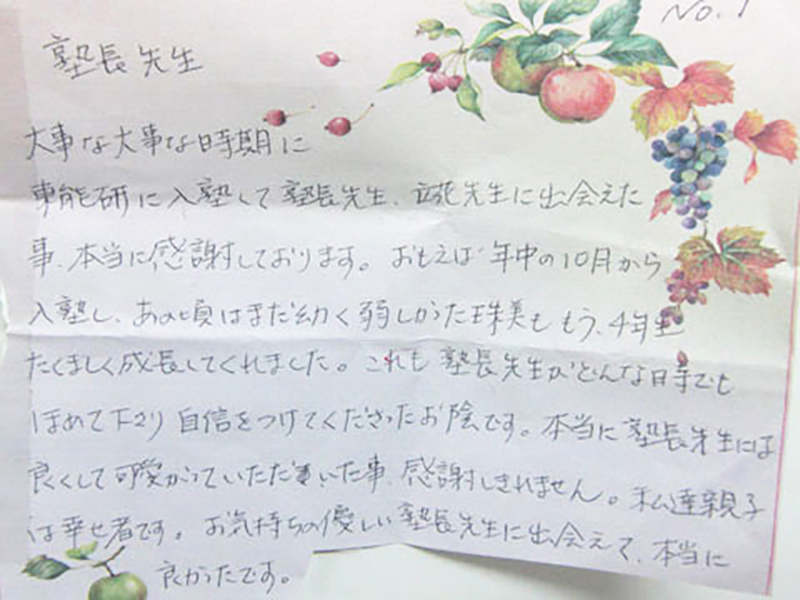 No.1
塾長先生
大事な大事な時期に
東能研に入塾して塾長先生、立花先生に出会えた
事、本当に感謝しております。おもえば年中の10月から
入塾し、あの頃はまだ幼く弱しかった珠美ももう、4年生
たくましく成長してくれました。これも塾長先生がどんな時でも
ほめて下さり自信をつけてくださったお陰です。本当に塾長先生には
良くして可愛がっていただいた事、感謝しきれません。私達親子
は幸せ者です。お気持ちの優しい塾長先生に出会えて、本当に
良かったです。